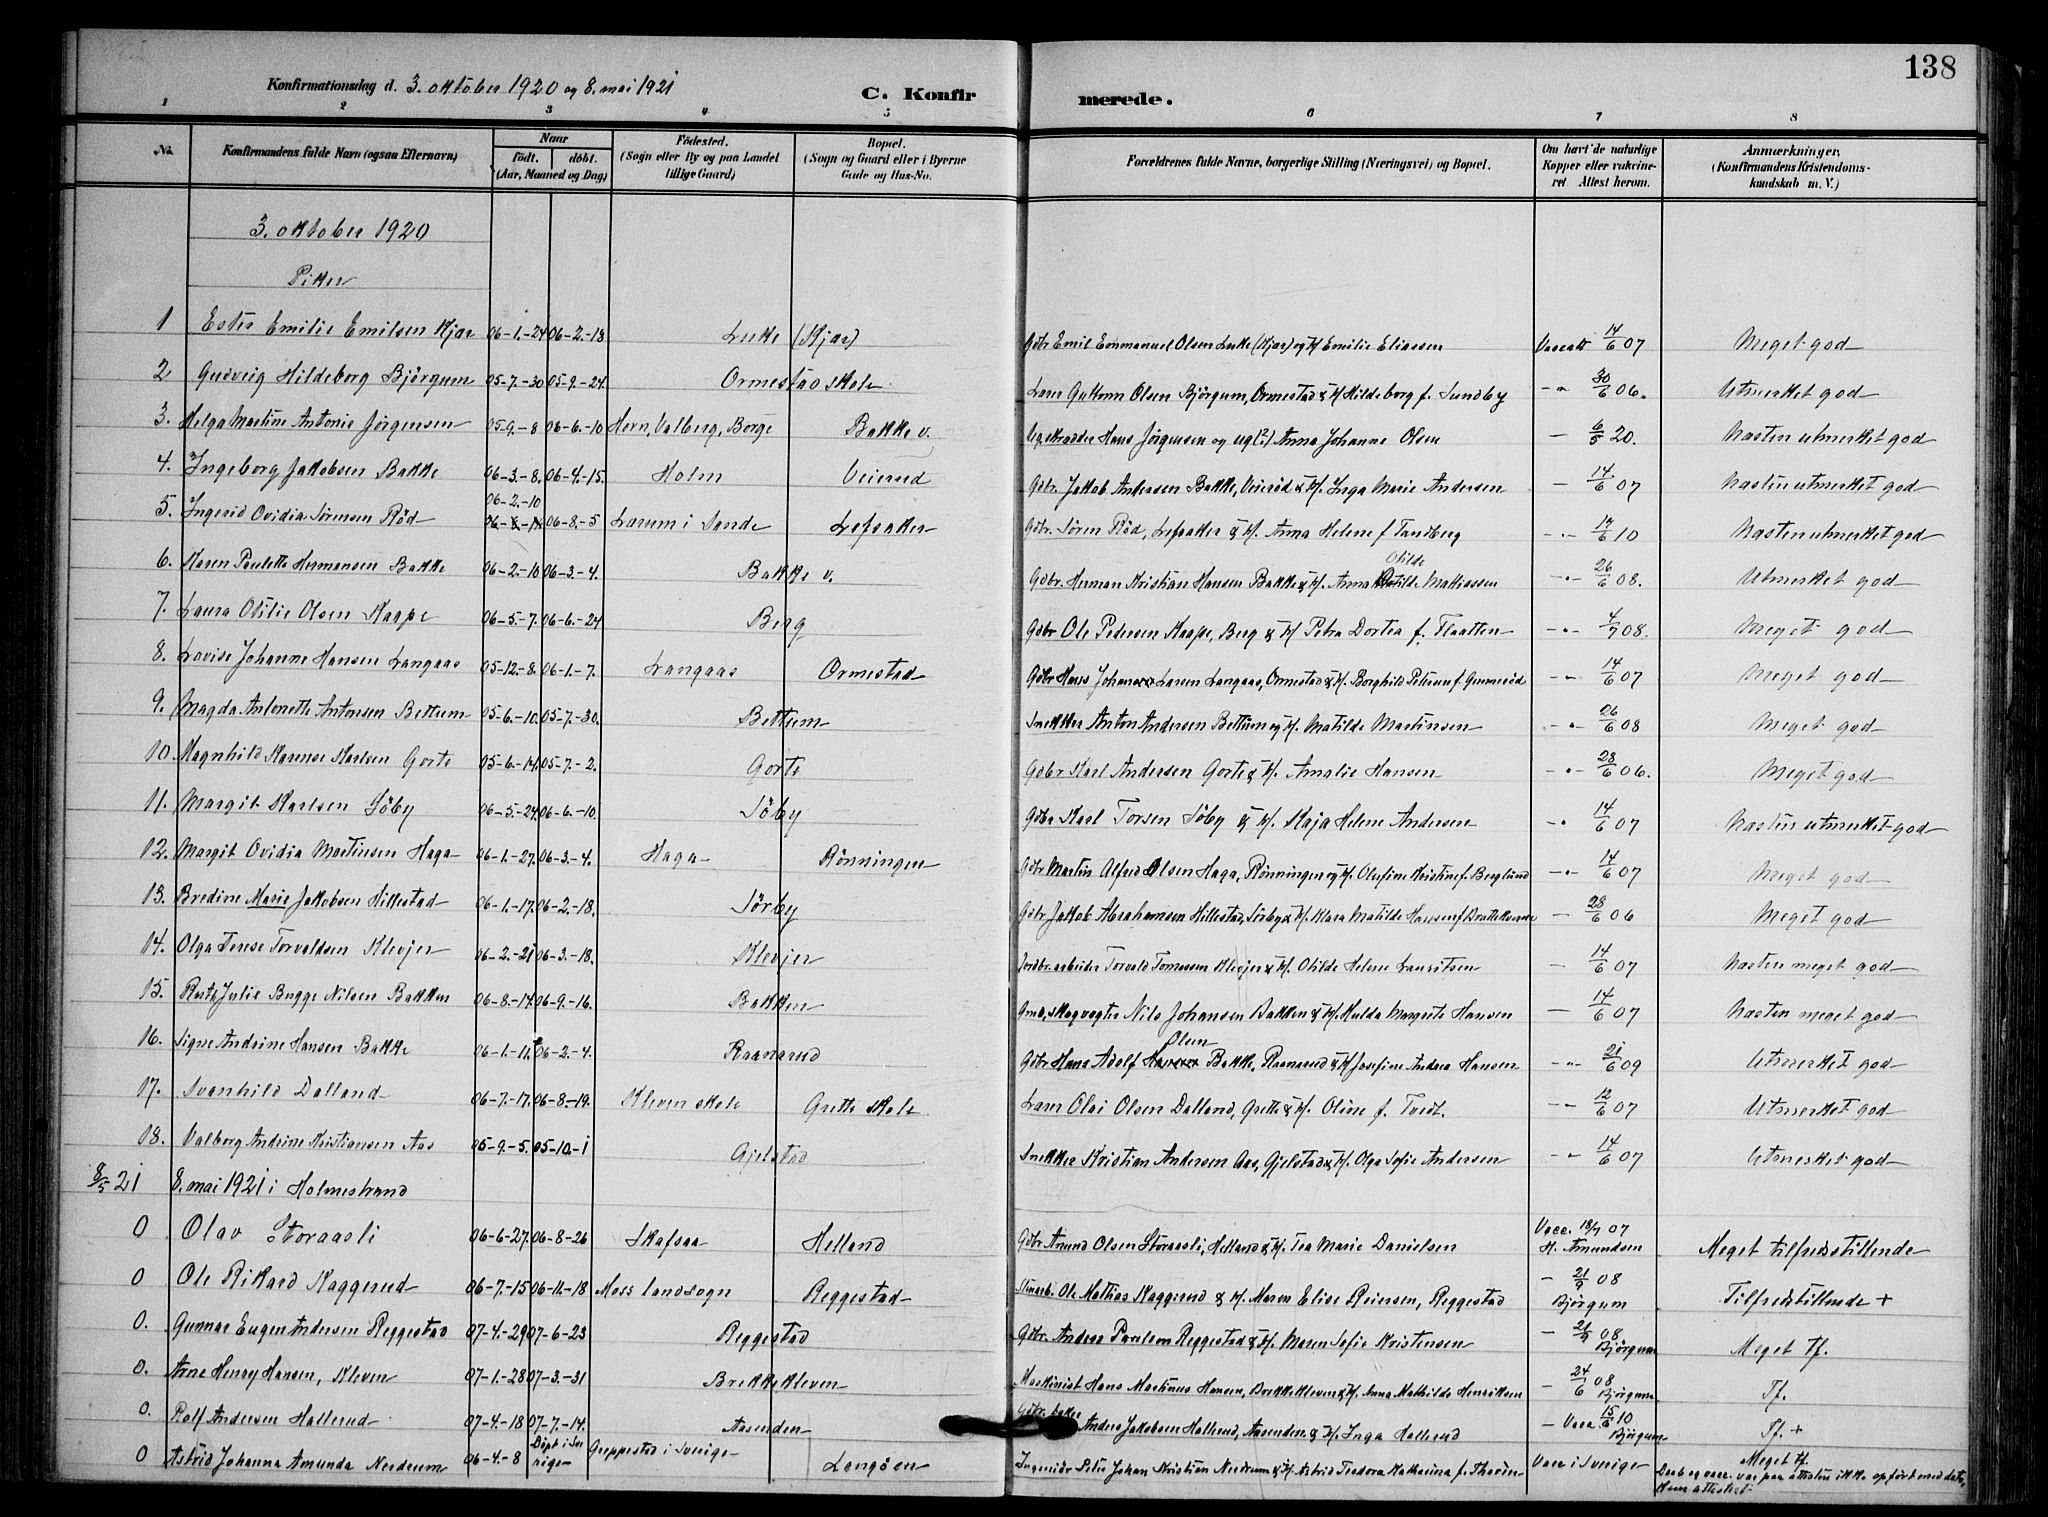 138
Konfirmationsdag d. 3. oktober 1920 og 8. mai 1921
C. Konfirmerede.
1 2 3 4 5 6 7 8
No. Konfirmandens fulde Navn (ogsaa Efternavn) Naar födt. döbt. (Aar, Maaned og Dag) Födested. (Sogn eller By og paa Landet tillige Gaard) Bopæl. (Sogn og Gaard eller i Byerne Gade og Hus-No. Forældrenes fulde Navne, borgerlige Stilling (Næringsvei) og Bopæl. Om havt de naturlige Kopper eller vakcineret Attest herom. Anmærkninger. (Konfirmandens Kristendomskundskab m. V.)
3. oktober 1920
Piker
1 Ester Emilie Emilsen Kjær 06-1.-24 06-2.-18 Lukke (Kjær) Gdbr Emil Emmanuel Olsen Lukke (Kjær) og H. Emilie Eliassen 14/6 07 Meget god
2 Gudveig Hildeborg Björgum 05-7.-30 05-9.-24. Ormestad skole Lærer Guttorm Olsen Björgum, Ormestad & H. Hildeborg f. Sundby -"- 30/6 06. Utmerket god
3. Helga Martine Antonie Jörgensen 05-9.-8 06-6.-10 Horn, Valberg, Borge Bakke v. Hans Jörgensen og ug(?) Anna Johanne Olsen - 6/5 20. Næsten utmerket god
4. Ingeborg Jakobsen Bakke 06-3.-8. 06-4.-15. Holm Veierud Gdbr. Jakob Andersen Bakke, Veieröd & H. Inga Marie Andersen - 14/6 07 Næsten utmerket god
5. Ingerid Ovidia Sörensen Röd 06-2.-10 06-8.-5 Larum i Sande Lefsaker Gdbr. Sören Röd, Lefsaker & H. Anna Helene f Tandberg -"- 14/6 10 Næsten utmerket god
6. Karen Paulette Hermansen Bakke 06-2.-10 06-3.-4. Bakke v. Gdbr. Herman Kristian Hansen Bakke & H. Anna Otilde Matiassen -"- 26/6 08. Utmerket god
7. Laura Otilie Olsen Kaape 06-5.-7. 06-6.-24 Berg Gdbr Ole Pedersen Kaape, Berg & H Petra Dortea f. Flaatten -"- 4/7 08. Meget god
8. Lovise Johanne Hansen Langaas 05-12.-8. 06-1.-7. Langaas Ormestad Gdbr Hans Johan Larsen Langaas, Ormestad & H. Borghild Petersen f. Gunneröd -"- 14/6 07 Meget god
9. Magda Antonette Antonsen Bettum 05-6.-10. 05-7.-30. Bettum Snekker Anton Andersen Bettum og H. Matilde Martinsen -"- 26/6 08 Meget god
10. Magnhild Karense Karlsen Gorte 05-6.-14. 05-7.-2. Gorte Gdbr Karl Andersen Gorte & H. Amalie Hansen -"- 28/6 06. Meget god
11. Margit Karlsen Söby 06-5.-24. 06-6.-10. Söby Gdbr Karl Torsen Söby & H. Kaja Helene Andersen -" 14/6 07 Næsten utmerket god
12. Margit Ovidia Martinsen Haga 06-1.-27. 06-3.-4. Haga Rönningen Gdbr Martin Alfred Olsen Haga, Rönningen og H. Olufine Kristine f. Berglund -"- 14/6 07 Meget god
13. Bredine Marie Jakobsen Hillestad 06-1.-17. 06-2.-18. Sörby Gdbr Jakob Abrahamsen Hillestad, Sörby & H. Klara Matilde Hansen f - 28/6 06 Meget god
14. Olga Terese Torvaldsen Klevjer 06-2.-21 06-3.-18. Klevjer Jordbr.arbeider Torvald Tomassen Klevjer & H. Otilde Helene Lauritsen - 14/6 07 Næsten meget god
15. Rut Julie Bugge Nilsen Bakken 06-8.-14. 06-9.-16. Bakken Gmb, skogvogter Nils Johansen Bakken & H. Hulda Margrete Hansen - 14/6 07 Næsten meget god
16. Signe Andrine Hansen Bakke 06-1.-11. 06-2.-4. Raanerud Gdbr Hans Adolf Olsen Bakke, Raanerud & H Josefine Andrea Hansen -"- 21/6 09 Utmerket god
17. Svanhild Dalland 06-7.-17. 06-8.-19. Kleven skole Grette skole Lærer Olai Olsen Dalland, Grette & H. Oline f. Tvedt. -"- 12/6 07 Utmerket god
18. Valborg Andrine Kristiansen Aas 05-9.-5. 05-10.-1 Gjelstad Snekker Kristian Andersen Aas, Gjelstad & H. Olga Sofie Andersen -"- 14/6 07 Utmerket god
8/5 21 8. mai 1921 i Holmestrand
0 Olav Storaasli 06-6-27. 06-8-26 Skafsaa Helland Gdbr Amund Olsen Storaasli, Helland & H. Tea Marie Danielsen Vacc. 18/7 07 H. Amundsen Meget tilfredsstillende
0 Ole Rikard Kaggerud 06-7.-15 06-11.-18 Moss landsogn Reggestad Stenarb. Ole Mathias Kaggerud & H. Maren Elise Reiersen, Reggestad - 21/9 08 Björgum Tilfredstillende +
0. Gunnar Eugen Andersen Reggestad 07-4.-29 07-6-23 Reggestad Gdbr. Anders Paulsen Reggestad & H. Maren Sofie Kristensen - 21/9 08 Björgum Meget tf.
0. Arne Henry Hansen, Kleven 07-1.-28 07-3.-31 Brekkekleven Maskinist Hans Martinus Hansen, Brekkekleven & H. Anna Mathilde Henriksen - 24/6 08 Björgum Tf.
0. Rolf Andersen Hallerud 07-4.-18 07-7.-14. Aasenden Gdbr. Anders Jakobsen Hallerud, Aasenden & H. Inga Hallerud - Vacc. 15/6 10 Björgum Tf. +
0 Astrid Johanna Amunda Nerdrum 06-4.-8 Döpt i Sverige Greppestad i Sverige Langöen Ingeniör Peter Johan Kristian Nerdrum & H. Astrid Teodora Katharina f. Thorén Vacc i Sverige Meget tf. Daab og vacc. var paa attesten ikke opfört med dato, kun attestert